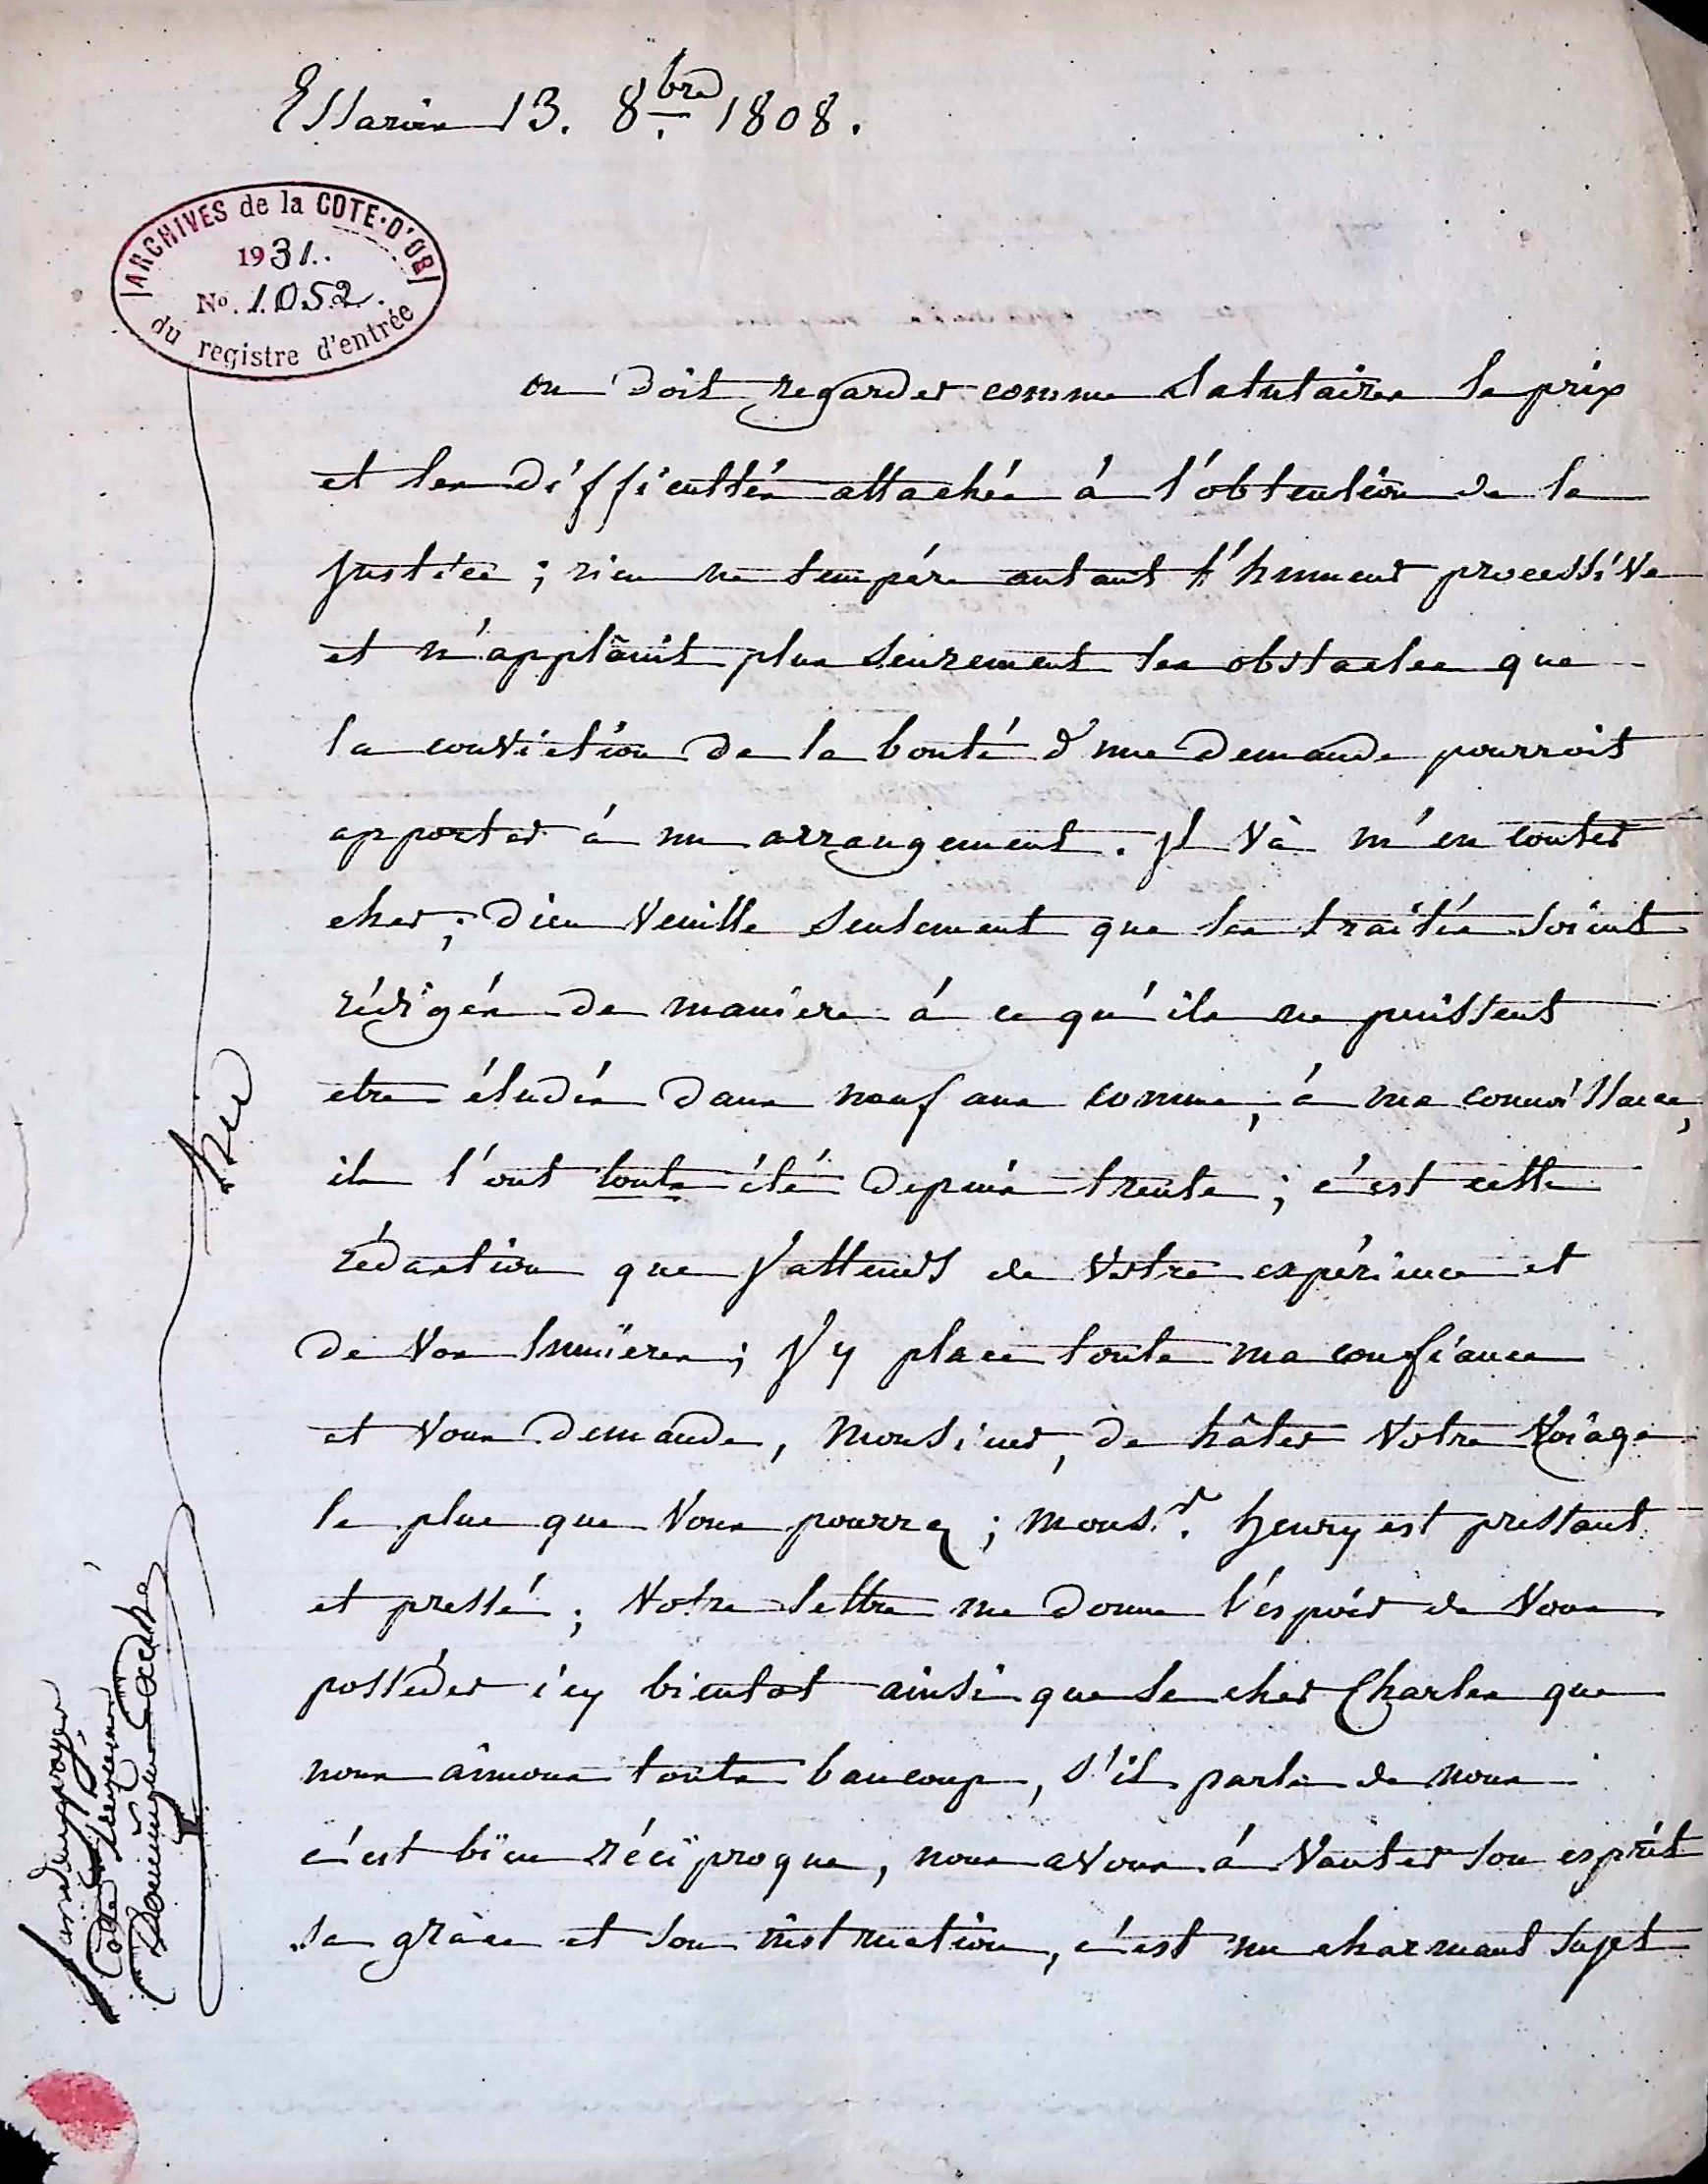 Essarois 13. 8.bre 1808.
ARCHIVES de la COTE-D'OR
1931.
No. 1.052.
du registre d'entrée
on doit regarder comme salutaires le prix
et les difficultés attachés à l'obtention de la
justice ; rien ne tempère autant l'humeur processive
et n'applanit plus seurement les obstacles que
la conviction de la bonté d'une demande pourroit
apporter à un arrangement. Jl và m'en couter
cher ; dieu veuille seulement que les traités soient
rédigés de manière à ce qu'ils ne puissent
etre éludés dans neuf ans comme, à ma connoissance,
ils l'ont touts été depuis trente ; c'est cette
rédaction que j'attends de votre expérience et
de vos lumières ; j'y place toute ma confiance
et vous demande, monsieur, de hâter votre voiage
le plus que vous pourrez ; mons.r henry est pressant
et pressé ; votre lettre me donne l'éspoir de vous
posséder icy bientot ainsi que le cher Charles que
nous aimons touts baucoup, s'il parle de nous
c'est bien réciproque, nous avons à vanter son esprit
sa grâce et son instruction, c'est un charmant sujet